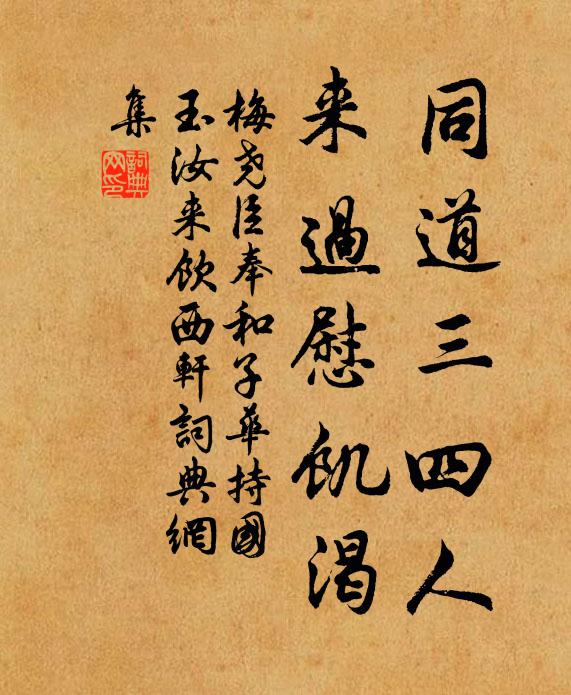 同道三四人
来過慰飢渴
梅尧臣奉和子華持國
玉汝来飲西軒詞典網
集
詞典網印